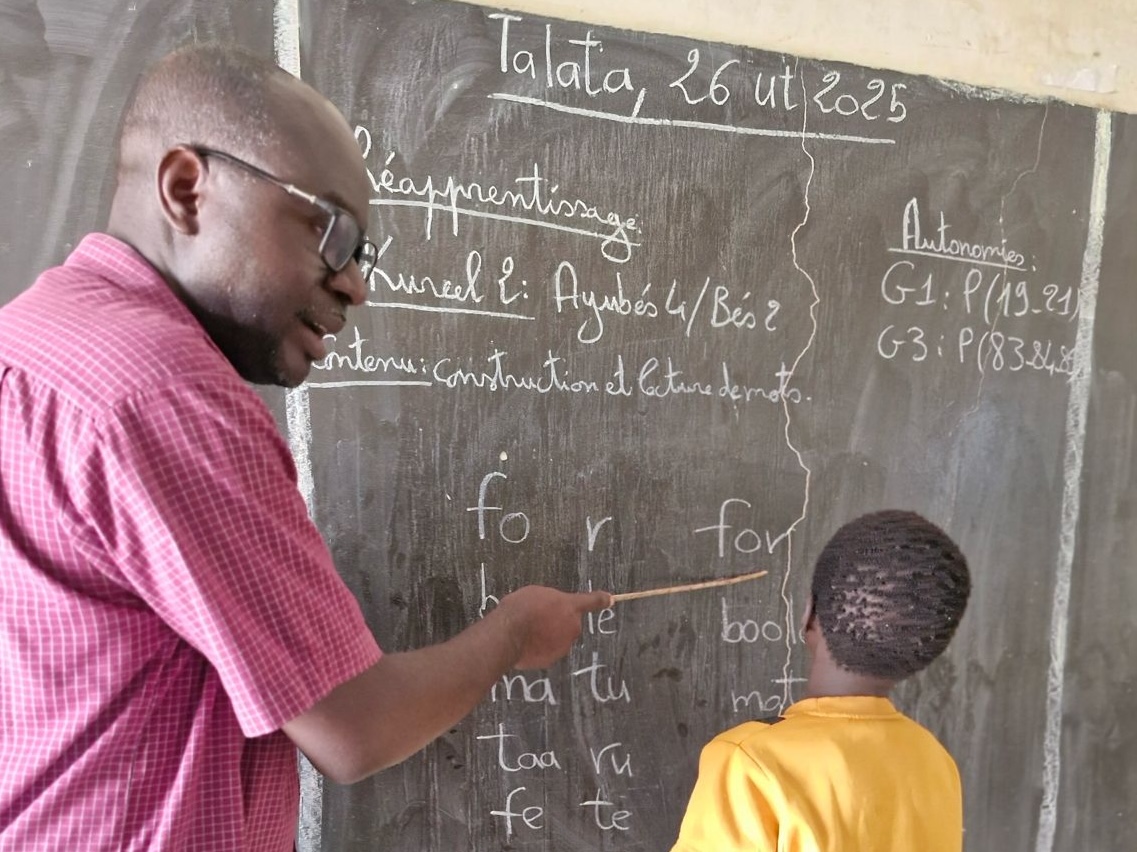 Talata, 26 ut 2025
Réapprentissage
Kureel 2: Ayubés 4/Bés 2
Contenu: construction et lecture de mots.
Autonomies:
G1: P(19_21)
G3: P(83.84.8
fo r for
le
ma tu mat
taa ru
fe te